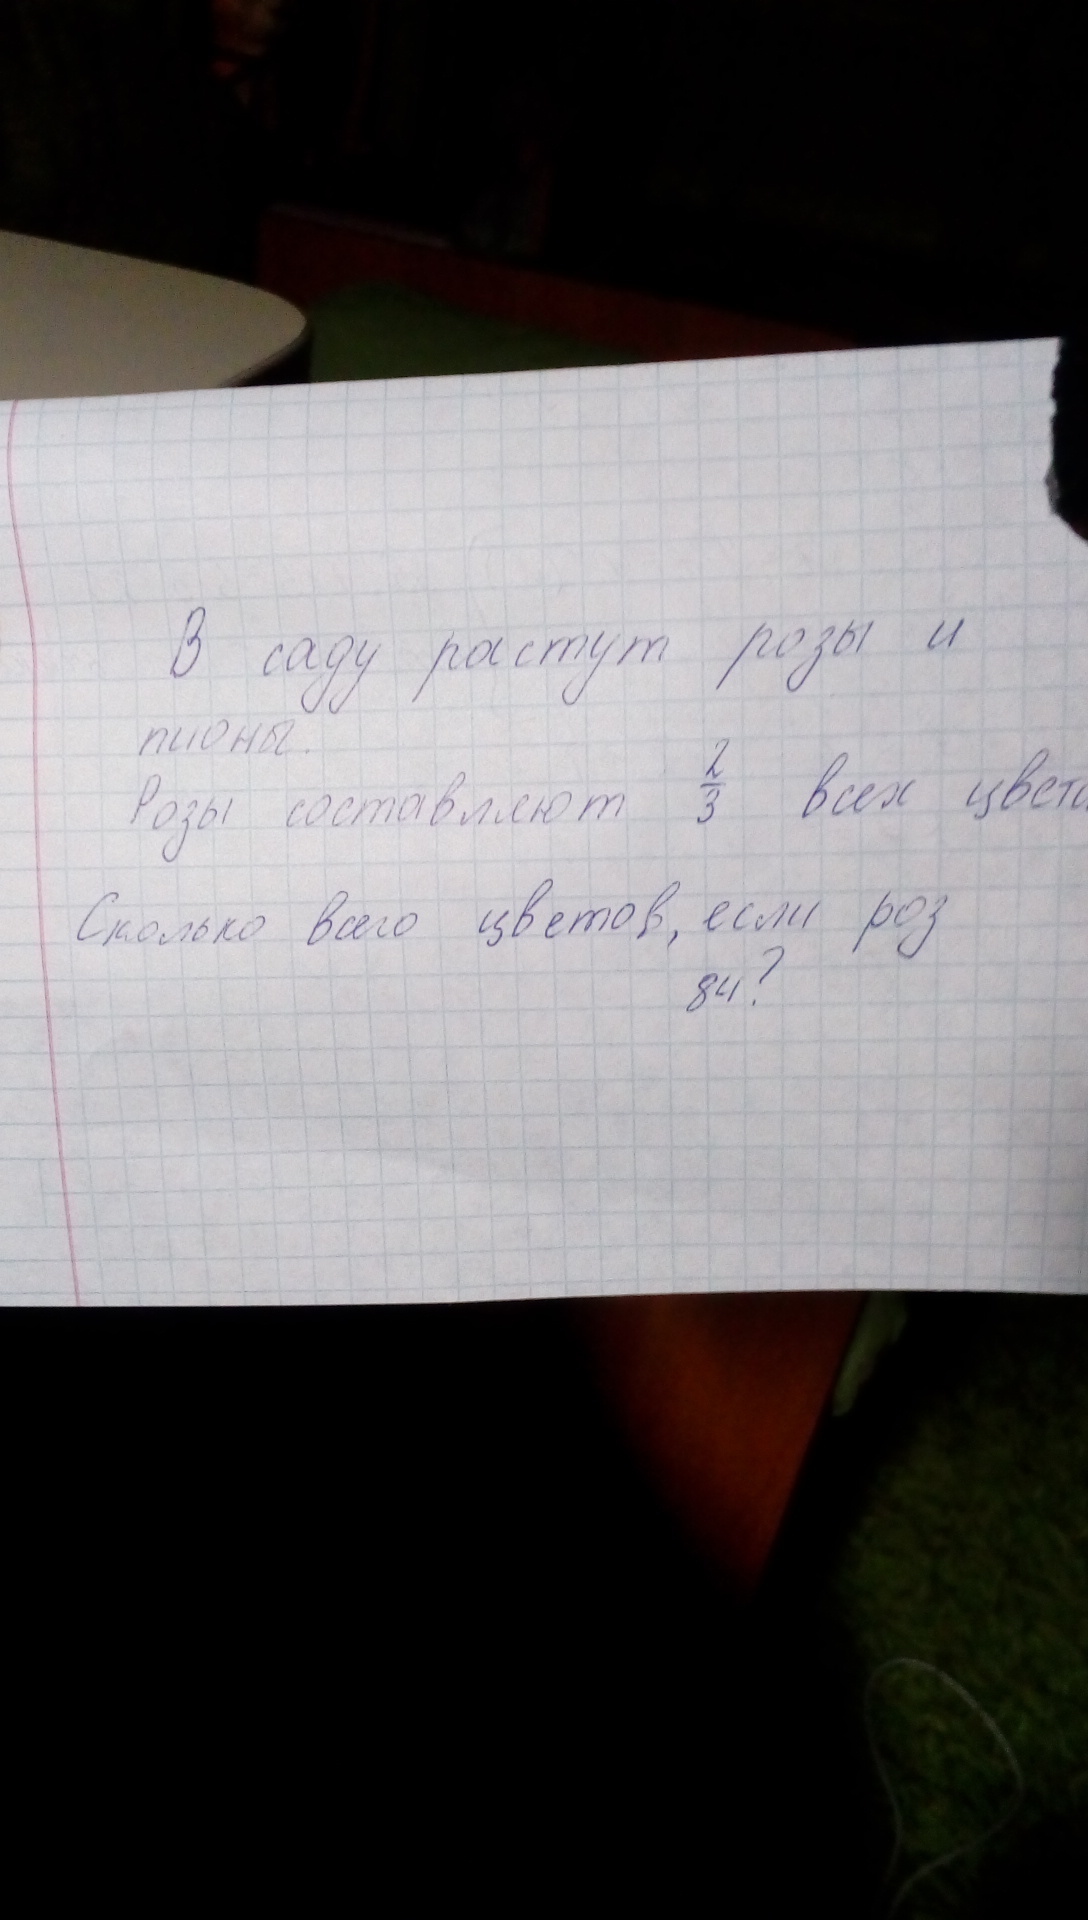 В саду растут розы и
пионы.
Розы составляют 2/3 всех
Сколько всего цветов, если роз
84?